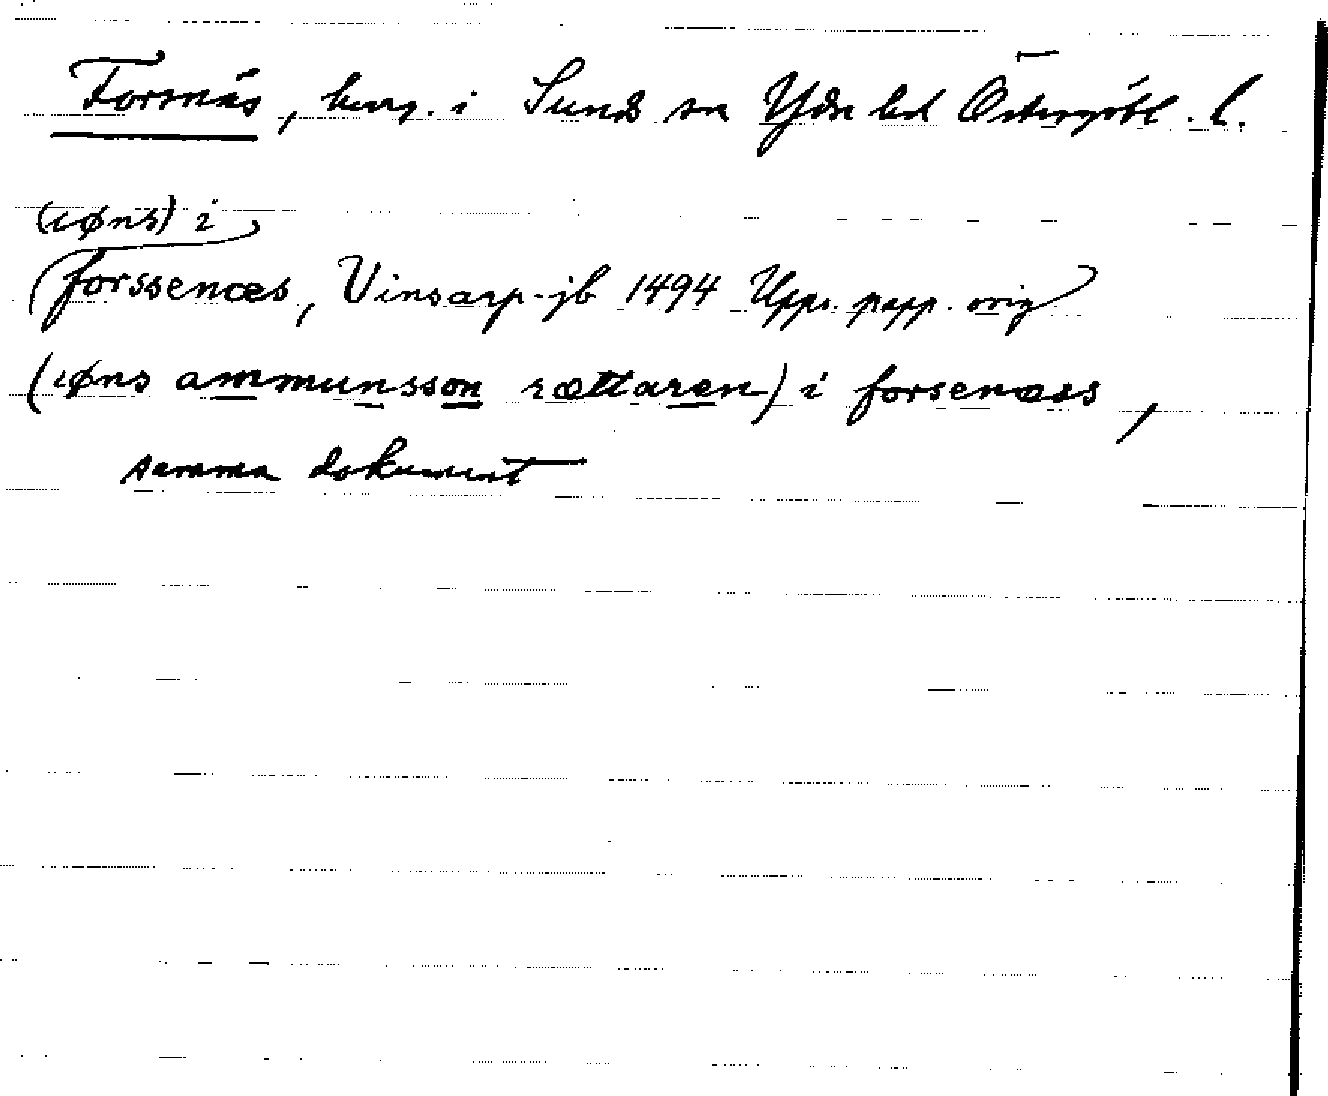 Forsnäs, herrg. i Sunds sn Ydre hd Östergötl. l.
(iøns) i
forssenæs, Vinsarp-jb 1494 Upps. papp. orig
(iøns ammunsson rættaren) i forsenæss,
samma dokument